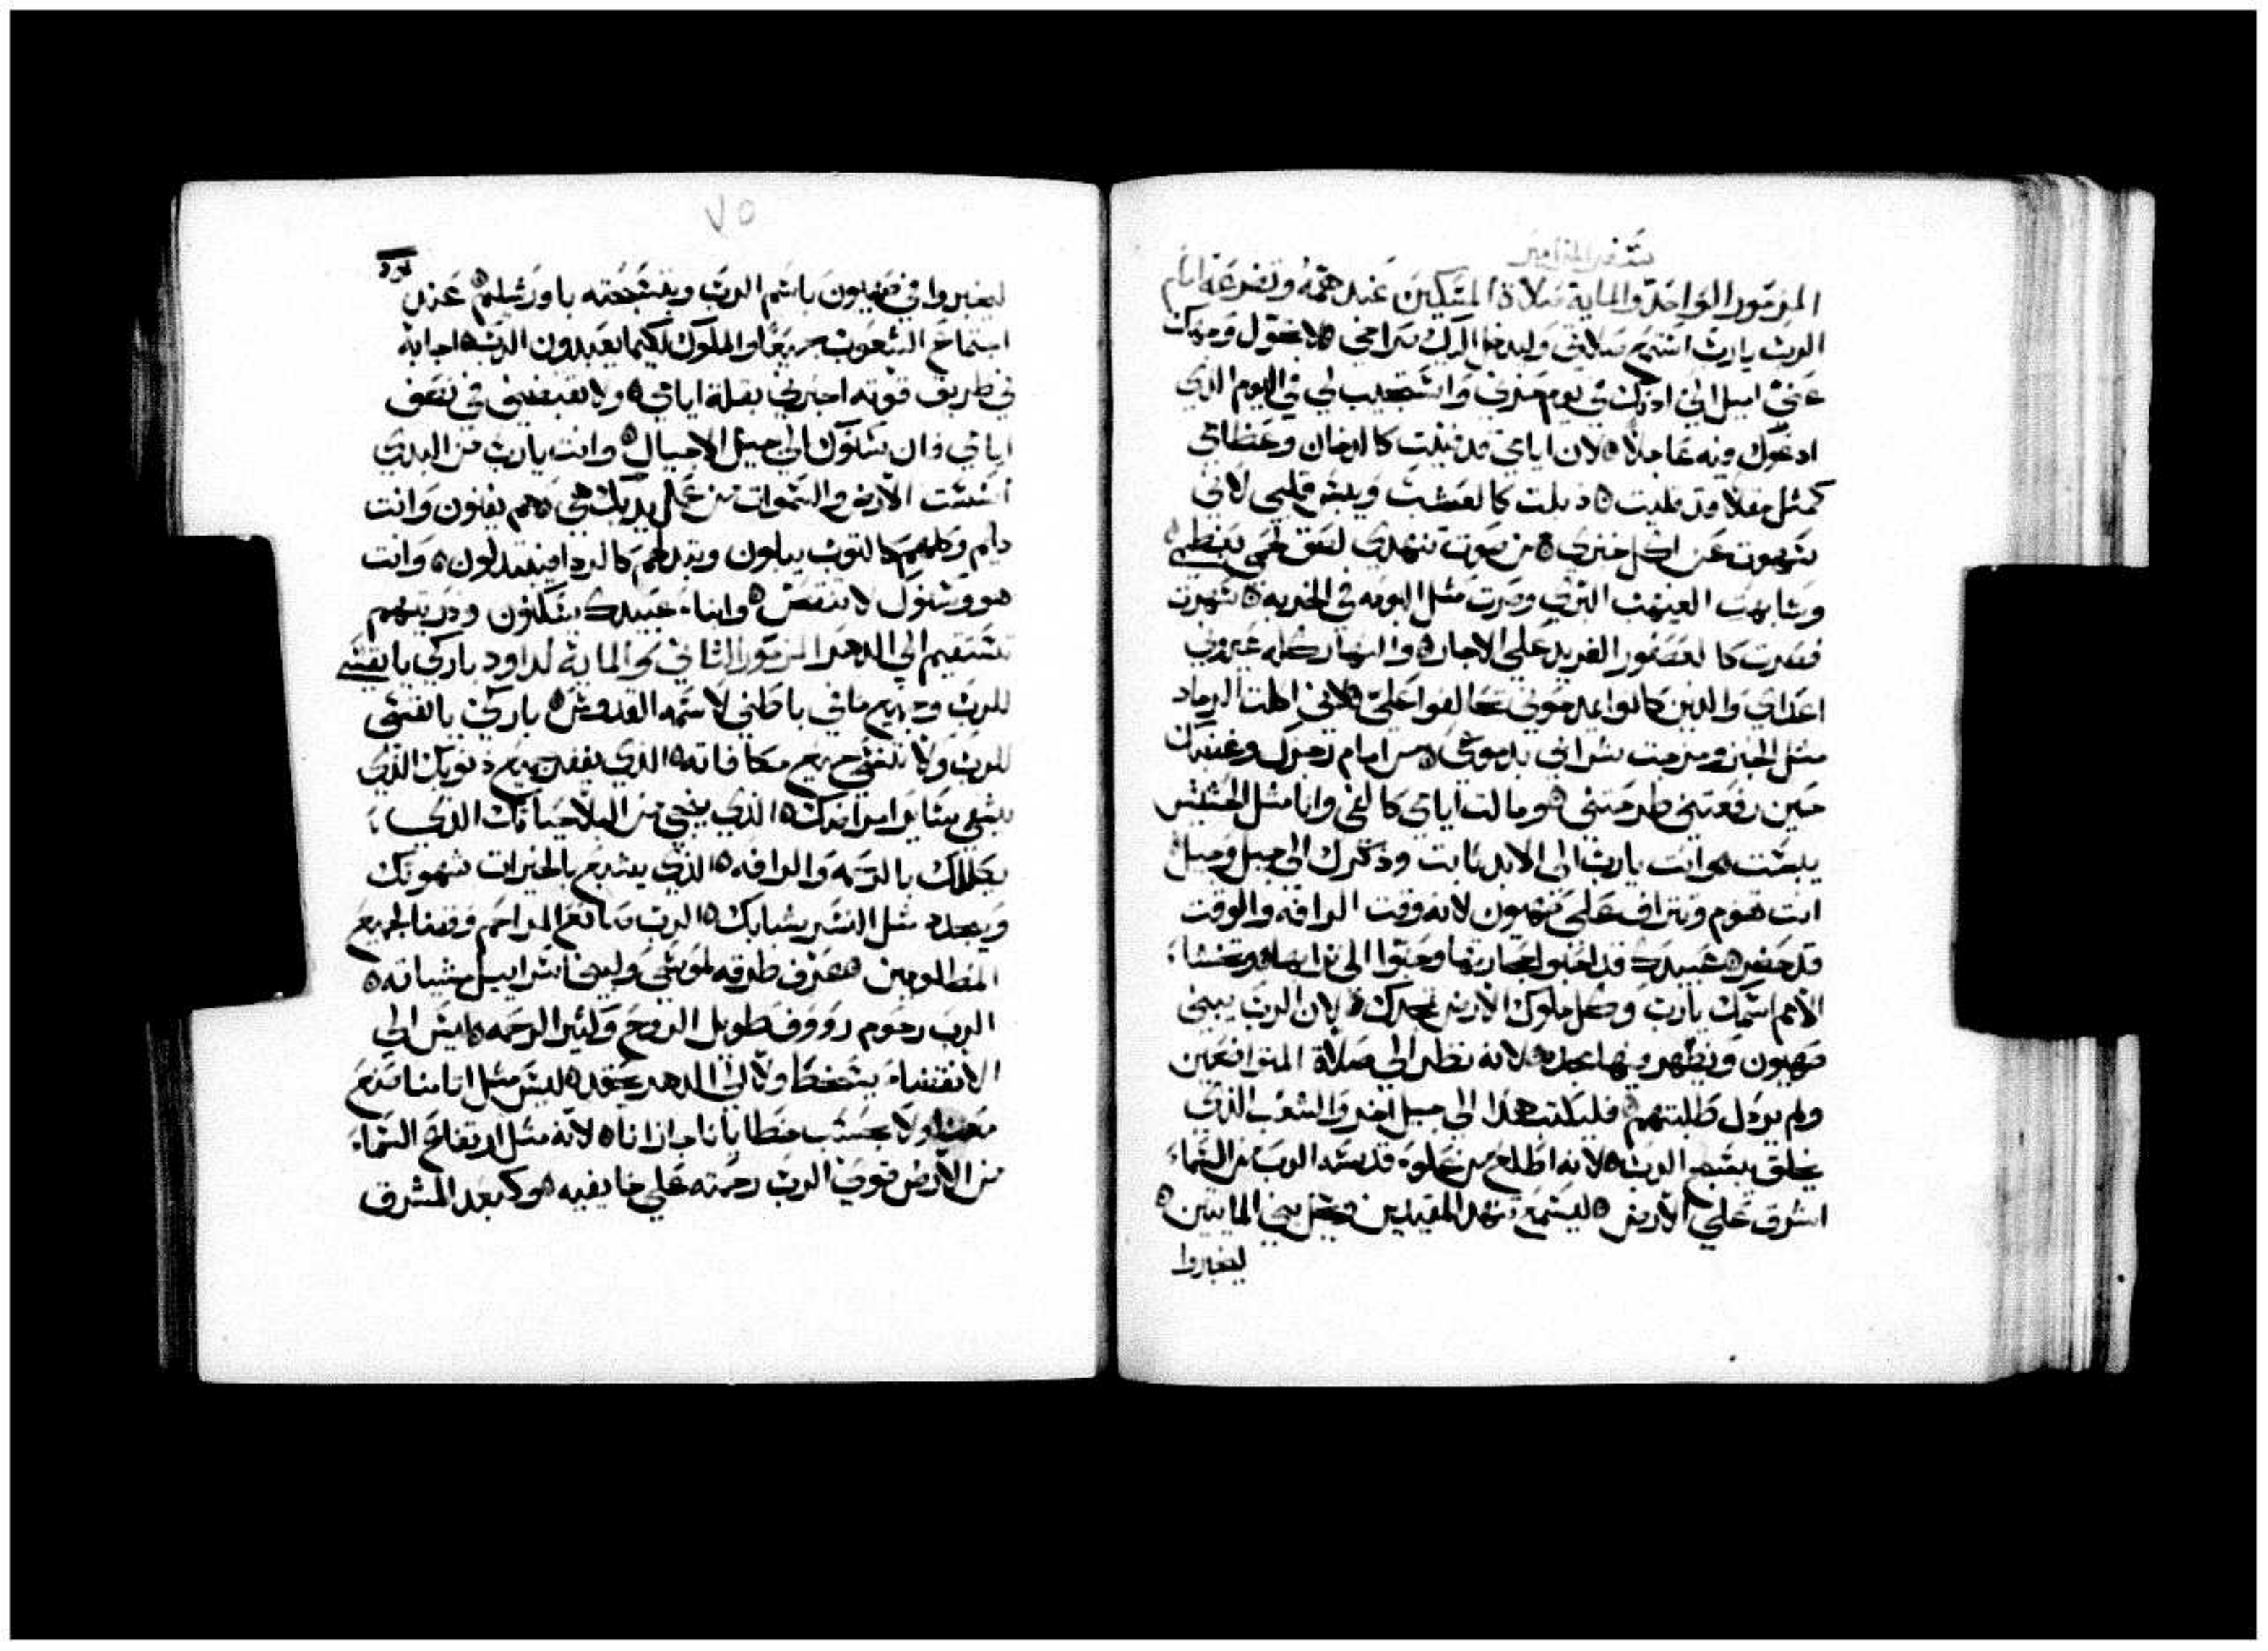 سفر المزامير
المزمور الواحد والماية صلاة المسكين عند همه وتضرعه امام
الرب يارب استمع صلاتي وليدخل اليك صراخي لا تحول وجهك
عني اميل الي ادنك في يوم حزني واستجيب لي في اليوم الذي
ادعوك فيه عاجلا لان ايامي قد فنيت كالدخان وعظامي
كمثل مقلا قد قليت ذبلت كالعشب ويبس قلبي لاني
سهوت عن اكل خبزي من صوت تنهدي لصق لحمي بعظمي
وشابهت العيهب البري وصرت مثل البومه في الخربه سهرت
فصرت كالعصفور الفريد علي الاجار والنهار كله عيروني
اعداي والدين كانوا يمدحوني تحالفوا علي لاني اكلت الرماد
مثل الخبز ومزجت شرابي بدموعي من امام رجزك وغضبك
حين رفعتني طرحتني ومالت ايامي كالفي وانا مثل الحشيش
يبست وانت يارب الي الابد ثابت وذكرك الي جيل وجيل
انت تقوم وتتراف علي صهيون لانه وقت الرافه والوقت
قد حضر عبيدك قد احبوا حجارتها وحنوا الي ترابها وتخشا
الامم اسمك يارب وكل ملوك الارض مجدك لان الرب يبني
صهيون ويظهر فيها مجده لانه نظر الي صلاة المتواضعين
ولم يردل طلبتهم فليكتب هدا الي جيل اخر والشعب الذي
يخلق يسبح الرب لانه اطلع من علوه قدسه الرب من السماء
اشرق علي الارض ليسمع تنهد المقيدين ويحل بني المايتين
ليخبروا
٧٥
ليخبروا في صهيون باسم الرب وبتسبحته باورشليم عند
اجتماع الشعوب جميعا والملوك لكيما يعبدون الرب اجابه
في طريق قوته اخبرني بقلة ايامي ولا تقبضني في نصف
ايامي فان سنوك الي جيل الاجيال وانت يارب من البدي
اسست الارض والسموات من عمل يديك هي هم يفنون وانت
دايم وكلهم كالثوب يبلون وتبدلهم كالردا فيتبدلون وانت
هو وسنوك لا تنقص وابناء عبيدك يسكنون ودريتهم
تستقيم الي الدهر المزمور الثاني والماية لداود باركي يا نفسي
للرب وجميع مافي باطني لاسمه القدوس باركي يا نفسي
للرب ولا تنسي جميع مكافاته الذي يغفر جميع ذنوبك الذي
يشفي سايرا امراضك الذي ينجي من البلا حياتك الذي
يكللك بالرحمه والرافه الذي يشبع بالخيرات شهوتك
ويجدد مثل النسر شبابك الرب صانع المراحم وقضا لجميع
المظلومين عرف طرقه لموسي ولبني اسراييل مشياته
الرب رحوم رووف طويل الروح وكثير الرحمه ليس الي
الانقضاء يسخط ولا الي الدهر يحقد ليس مثل اثامنا صنع
معنا ولا بحسب خطايانا جازانا لانه مثل ارتفاع السماء
من الارض قوي الرب رحمته علي خايفيه وكبعد المشرق